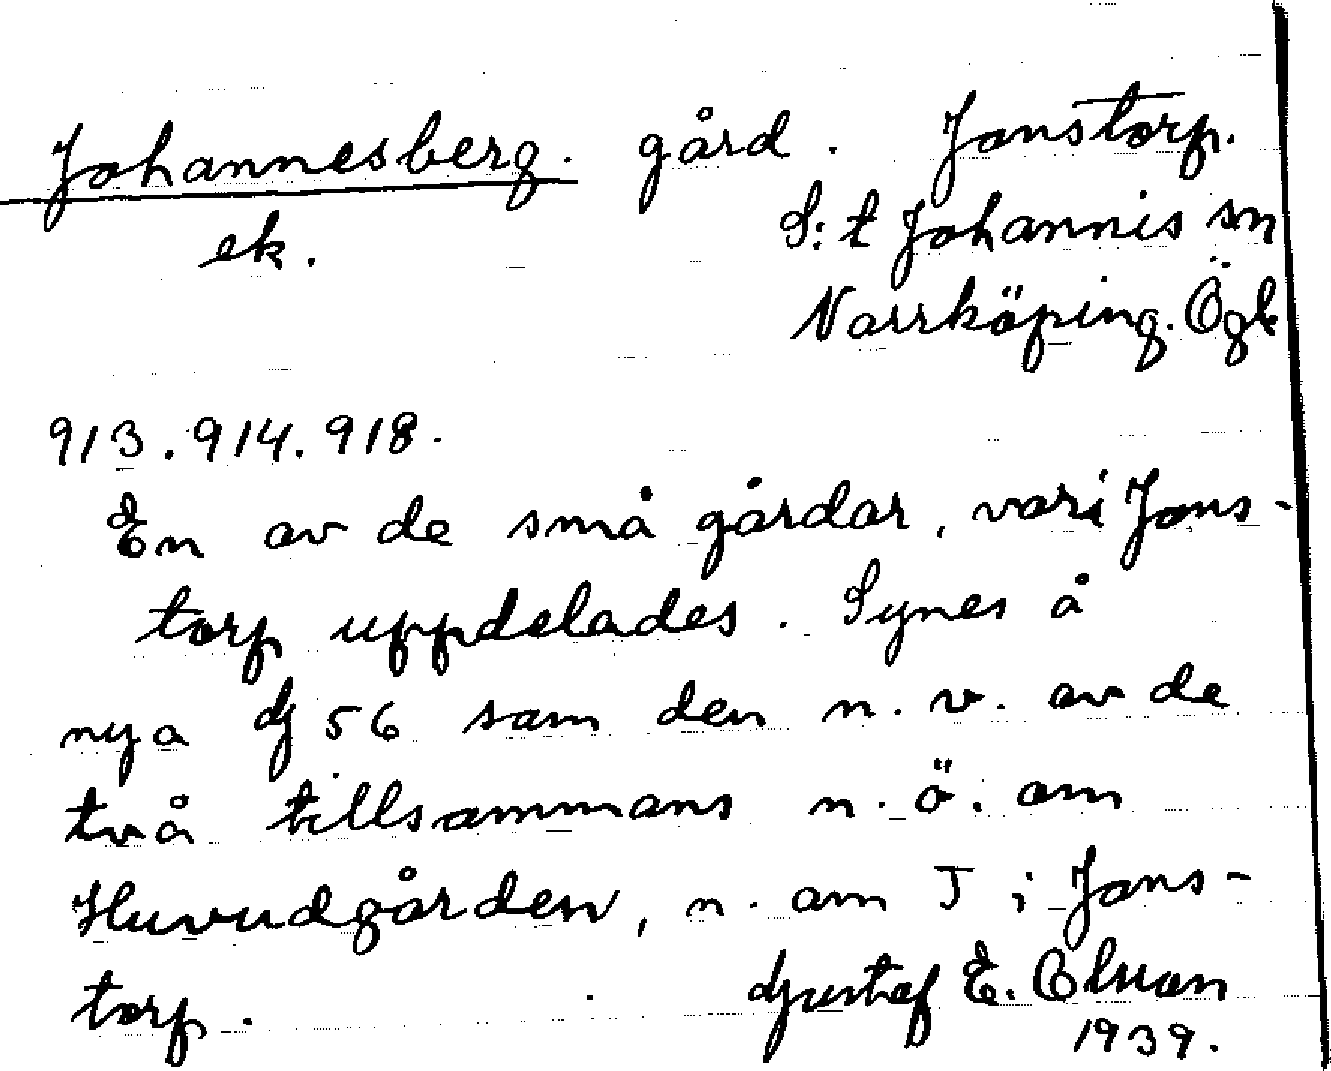 Johannesberg. gård. Jonstorp.
ek. S:t Johannis sn
Norrköping. Ögl
913.914.918.
En av de små gårdar, vari Jons-
torp uppdelades. Synes å
nya dj 56 som den n.v. av de
två tillsammans n.ö. om
Huvudgården, n. om J i Jons-
torp. Gustaf E.
1939.